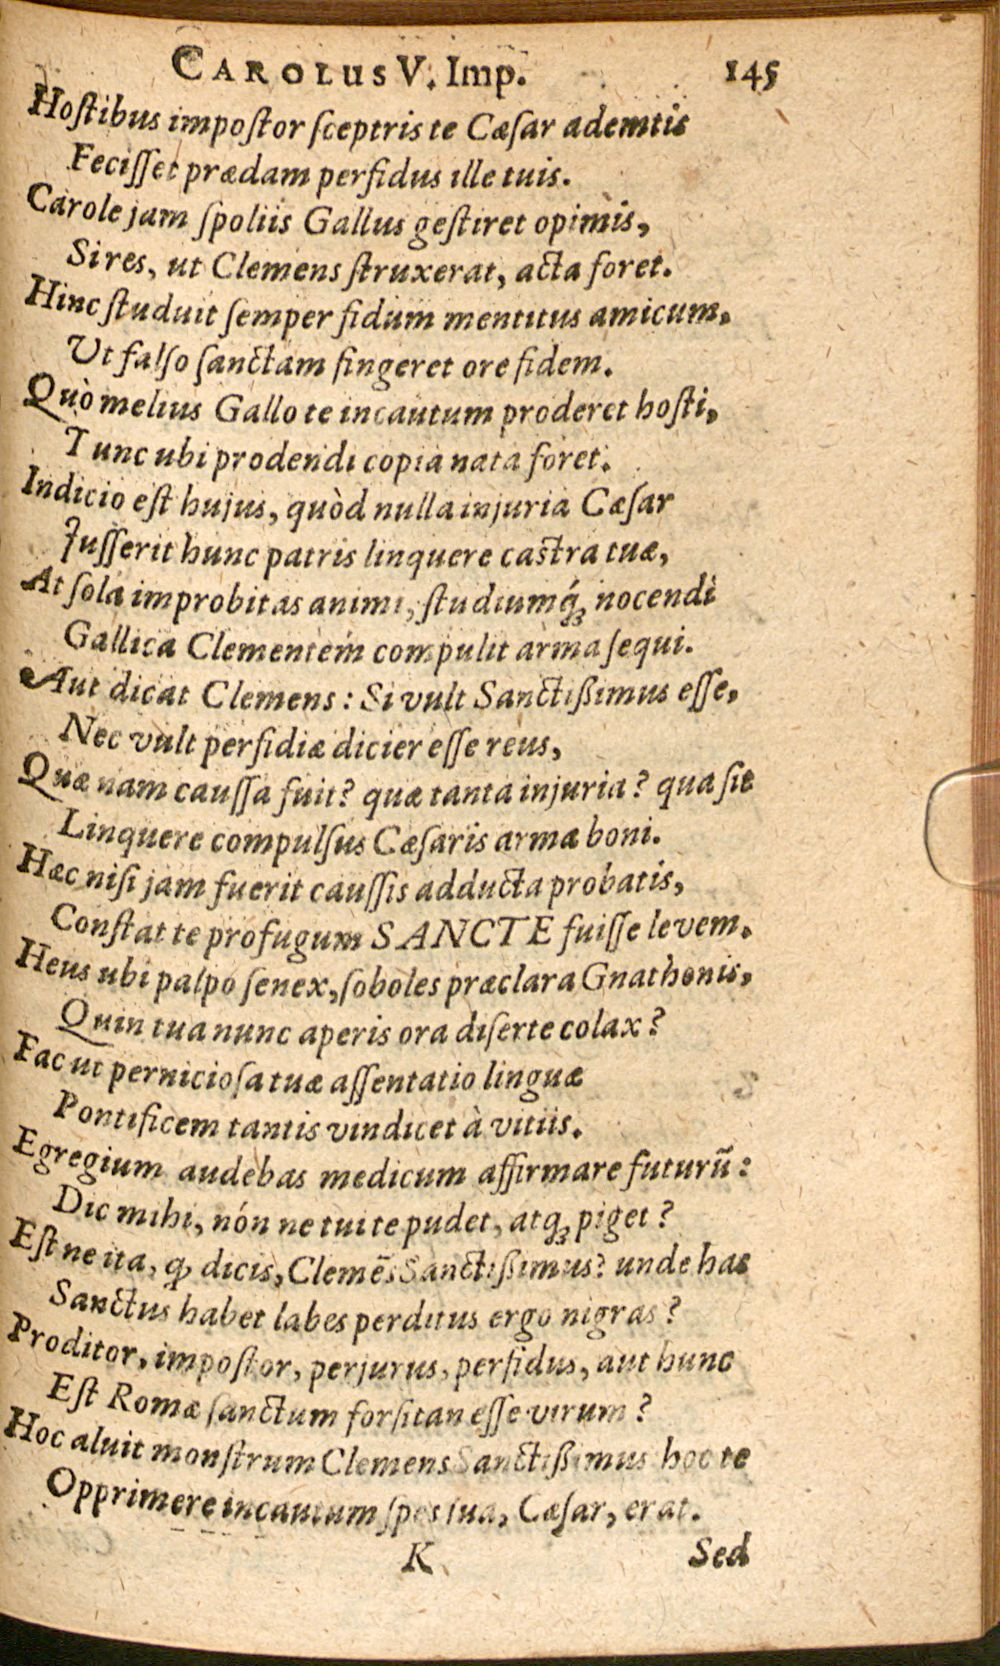 CAROLUS V. Imp. 145
Hoſtibus impoſtor ſceptris te Cæſar ademtis
Feciſſet prædam perfidus ille tuis.
Carole jam ſpoliis Gallus geſtiret opimis,
Si res, ut Clemens ſtruxerat, acta foret.
Hinc ſtuduit ſemper fidum mentitus amicum,
Ut falſo ſanctam fingeret ore fidem.
Quò melius Gallo te incautum proderet hoſti,
Tunc ubi prodendi copia nata foret.
Indicio eſt hujus, quòd nulla injuria Cæſar
Juſſerit hunc patris linquere caſtra tuæ,
At ſola improbitas animi, ſtudiumq́; nocendi
Gallica Clementem compulit arma ſequi.
Aut dicat Clemens: Si vult Sanctiſſimus eſſe,
Nec vult perfidiæ dicier eſſe reus,
Quæ nam cauſſa fuit? quæ tanta injuria? qua ſit
Linquere compulſus Cæſaris arma boni.
Hæc niſi jam fuerit cauſſis adducta probatis,
Conſtat te profugum SANCTE fuiſſe levem.
Heus ubi palpo ſenex, ſoboles præclara Gnathonis,
Quin tua nunc aperis ora diſerte colax?
Fac ut pernicioſa tuæ aſſentatio linguæ
Pontificem tantis vindicet à vitiis.
Egregium audebas medicum affirmare futurũ:
Dic mihi, nón ne tui te pudet, atq; piget?
Eſt ne ita, ꝙ dicis, Clemẽs Sanctiſſimus? unde has
Sanctus habet labes perditus ergo nigras?
Proditor, impoſtor, perjurus, perfidus, aut hunc
Eſt Romæ ſanctum forſitan eſſe virum?
Hoc aluit monſtrum Clemens Sanctiſſimus hoc te
Opprimere incautum ſpes ſua, Cæſar, erat.
K Sed